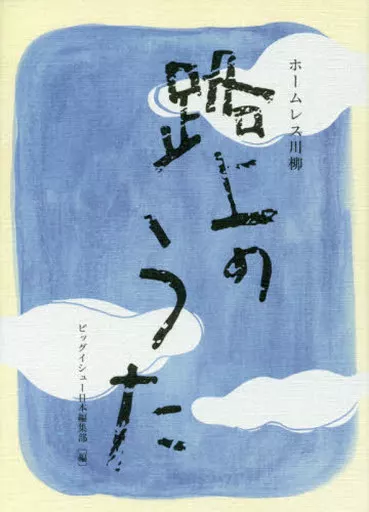 ホームレス川柳
路上の
うた
ビッグイシュー日本編集部［編］